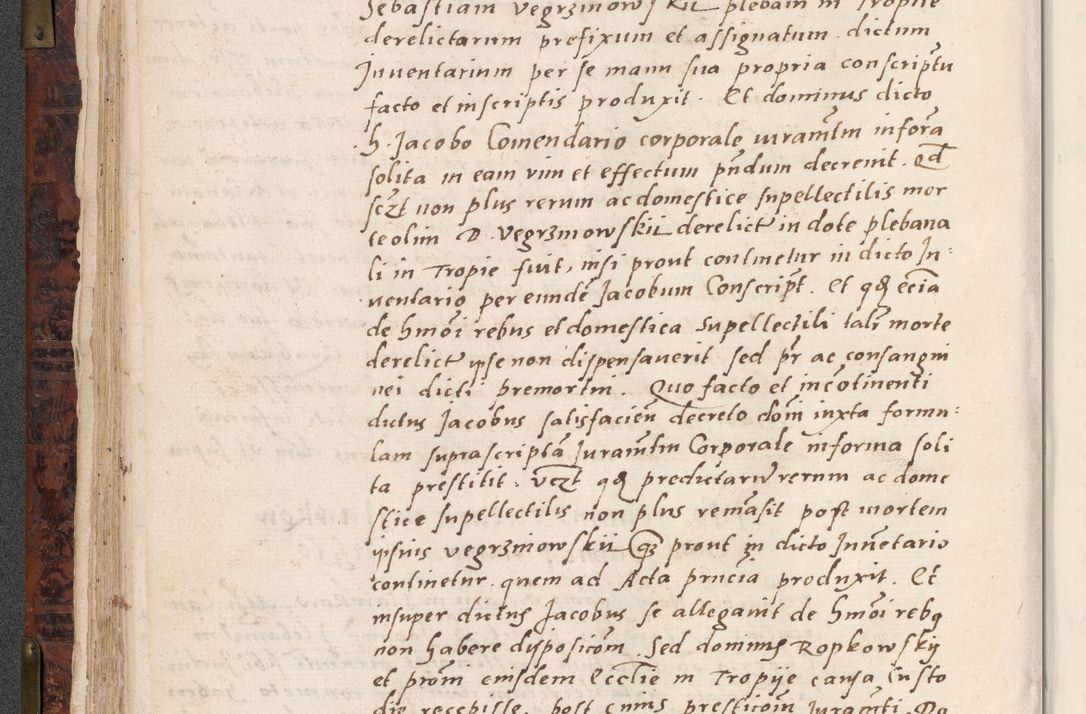 Sebastiam Vegrzmowskii plebam in Tropiie
derelictarum prefixum et assignatum. dictum
Inventarium per se manu sua propria conscriptu
facto et in scriptis produxit. Et dominus dicto
h. Jacobo Comendario corporale iuramtm in fora
solita in eam vim et effectum pñdum decrevit. Qd
sczt non plus rerum ac domestice supellectilis mor
te olim D. Vegrzmowskii derelict in dote plebana
li in Tropie fuit, nisi prout continetur in dicto In:
ventario per eunde Jacobum Conscript. Et qz ecia
de hmoi rebus et domestica Supellectili talr morte
derelict ipse non dispensaverit sed pr ac consangui
nei dicti premortui. Quo facto et incotinenti
dictus Jacobus satisfacien decreto dom iuxta formu:
lam supra scriptam Juramtm Corporale in forma soli
ta prestitit. vczt qz predictaru rerum ac dome
stice supellectilis non plus remasit post mortem
ipsius Vegrzmowskii qz prout in dicto Invetario
continetur. quem ad Acta pñcia produxit. Et
insuper dictus Jacobus se allegavit de hmoi rebq
non habere disposicom. Sed dominus Ropkowskij
et prom eiusdem Ecclie in Tropije causa Custo
die recepisse. post cuius presticom Juramti. Do